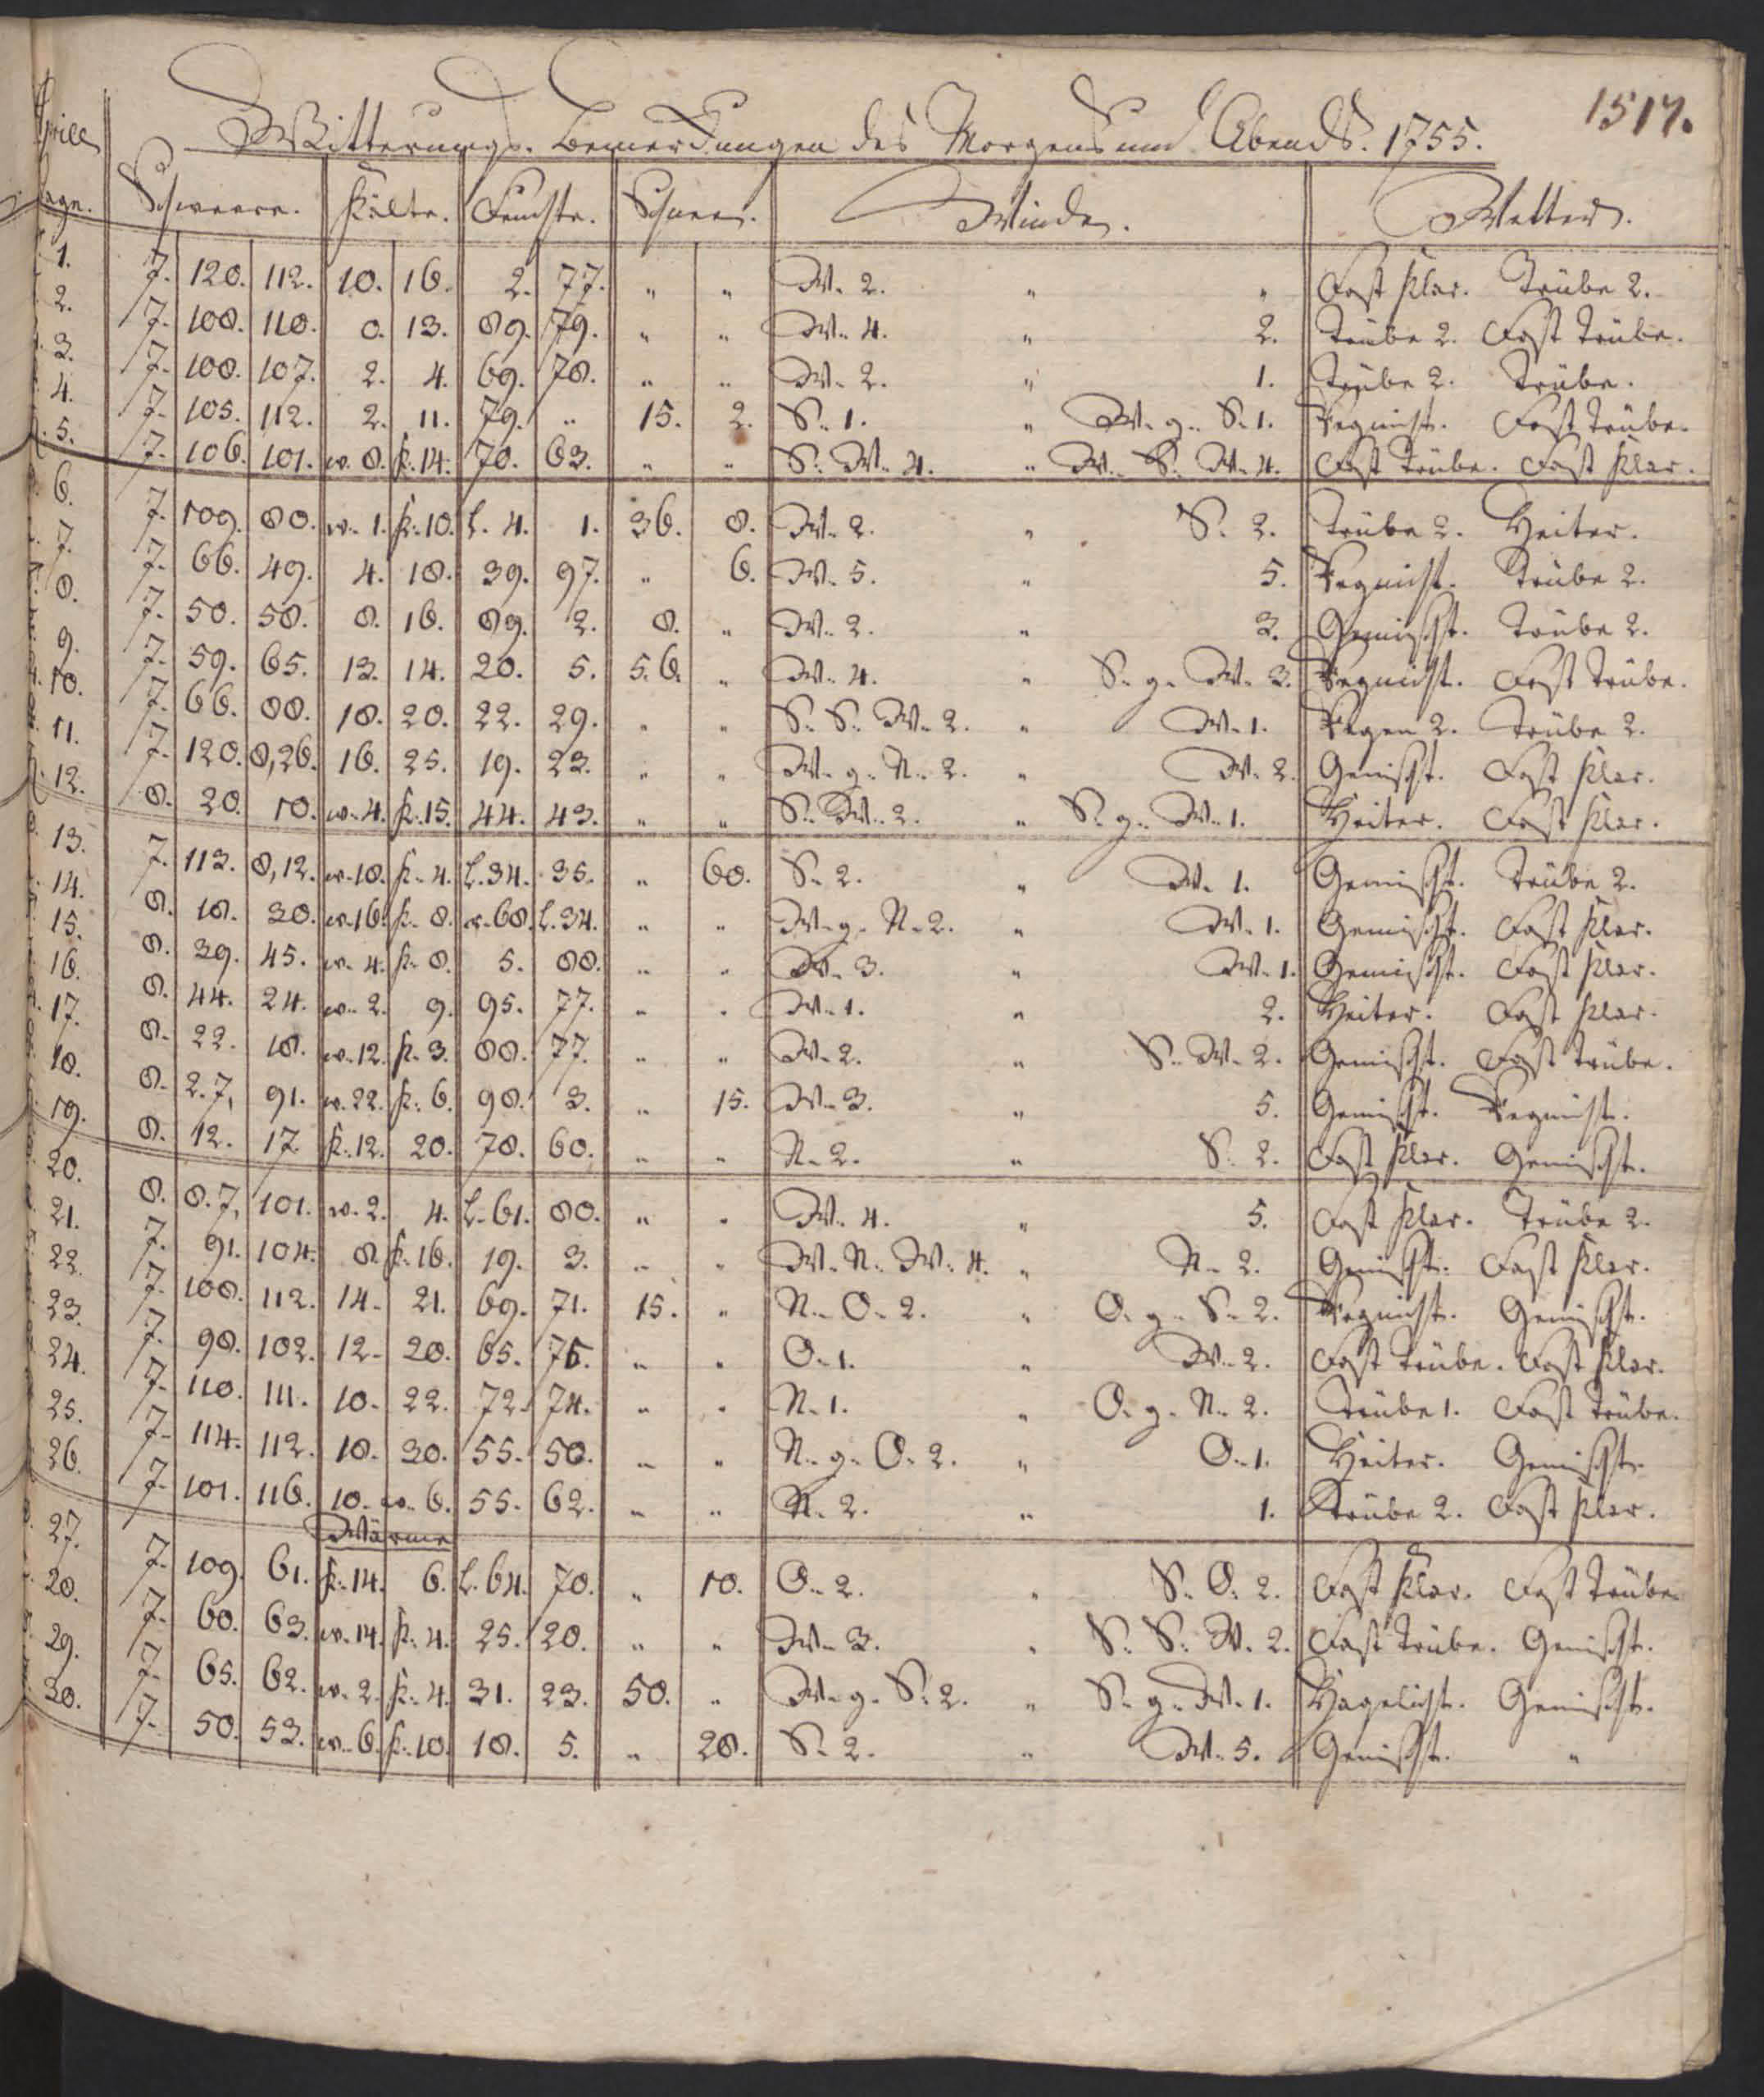 1517.
Aprill Witterungs-Bemerckungen des Morgens und Abends. 1755.
Tage. Schweere. Kälte. Feuchte. Schnee. Winde. Wetter.
1. 7. 120. 112. 10. 16. 2. 77. " " W. 2. " " Fast klar. Trübe 2.
2. 7. 108. 110. 0. 13. 89. 79. " " W. 4. " 2. Trübe 2. Fast trübe.
3. 7. 108. 107. 2. 4. 69. 78. " " W. 2. " 1. Trübe 2. Trübe.
4. 7. 105. 112. 2. 11. 79. " 15. 2. S. 1. " W. g. S. 1. Regnicht. Fast trübe.
5. 7. 106. 101. w. 8. k. 14. 70. 63. " " S. W. 4. " W. S. W. 4. Fast trübe. Fast klar.
6. 7. 109. 80. w. 1. k. 10. L. 4. 1. 36. 8. W. 2. " S. 2. Trübe 2. Heiter.
7. 7. 66. 49. 4. 18. 39. 97. " 6. W. 5. " 5. Regnicht. Trübe 2.
8. 7. 50. 58. 8. 16. 89. 2. 8. " W. 2. " 3. Gemischt. Trübe 2.
9. 7. 59. 65. 13. 14. 20. 5. 56. " W. 4. " S. g. W. 3. Regnicht. Fast trübe.
10. 7. 66. 88. 18. 20. 22. 29. " " S. S. W. 2. " W. 1. Regen 2. Trübe 2.
11. 7. 120. 8,26. 16. 25. 19. 23. " " W. g. N. 2. " W. 2. Gemischt. Fast klar.
12. 8. 20. 10. w. 4. k. 15. 44. 43. " " S. W. 2. " S. g. W. 1. Heiter. Fast klar.
13. 7. 113. 8,12. w. 18. k. 4. L. 34. 35. " 60. S. 2. " W. 1. Gemischt. Trübe 2.
14. 8. 18. 30. w. 16. k. 8. 68. L. 34. " " W. g. N. 2. " W. 1. Gemischt. Fast klar.
15. 8. 39. 45. w. 4. k. 8. 5. 88. " " W. 3. " W. 1. Gemischt. Fast klar.
16. 8. 44. 24. w. 2. 9. 95. 77. " " W. 1. " 2. Heiter. Fast klar.
17. 8. 22. 18. w. 12. k. 3. 88. 77. " " W. 2. " S. W. 2. Gemischt. Fast trübe.
18. 8. 2. 7, 91. w. 22. k. 6. 98. 3. " 15. W. 3. " 5. Gemischt. Regnicht.
19. 8. 12. 17. k. 12. 20. 78. 60. " " N. 2. " S. 2. Fast klar. Gemischt.
20. 8. 8. 7, 101. w. 2. 4. L. 61. 80. " " W. 4. " 5. Fast klar. Trübe 2.
21. 7. 91. 104. 8. k. 16. 19. 3. " " W. N. W. 4. " N. 2. Gemischt. Fast klar.
22. 7. 108. 112. 14. 21. 69. 71. 15. " N. O. 2. " O. g. S. 2. Regnicht. Gemischt.
23. 7. 98. 102. 12. 20. 65. 75. " " O. 1. " W. 2. Fast trübe. Fast klar.
24. 7. 110. 111. 10. 22. 72. 74. " " N. 1. " O. g. N. 2. Trübe 1. Fast trübe.
25. 7. 114. 112. 18. 30. 55. 50. " " N. g. O. 2. " O. 1. Heiter. Gemischt.
26. 7. 101. 116. 10. w. 6. 55. 62. " " N. 2. " 1. Trübe 2. Fast klar.
Wärme
27. 7. 109. 61. k. 14. 6. L. 64. 70. " 10. O. 2. " S. O. 2. Fast klar. Fast trübe.
28. 7. 60. 63. w. 14. k. 4. 25. 20. " " W. 3. " S. S. W. 2. Fast trübe. Gemischt.
29. 7. 65. 62. w. 2. k. 4. 31. 23. 50. " W. g. S. 2. " S. g. W. 1. Hagelicht. Gemischt.
30. 7. 50. 53. w. 6. k. 10. 18. 5. " 28. S. 2. " W. 5. Gemischt. "